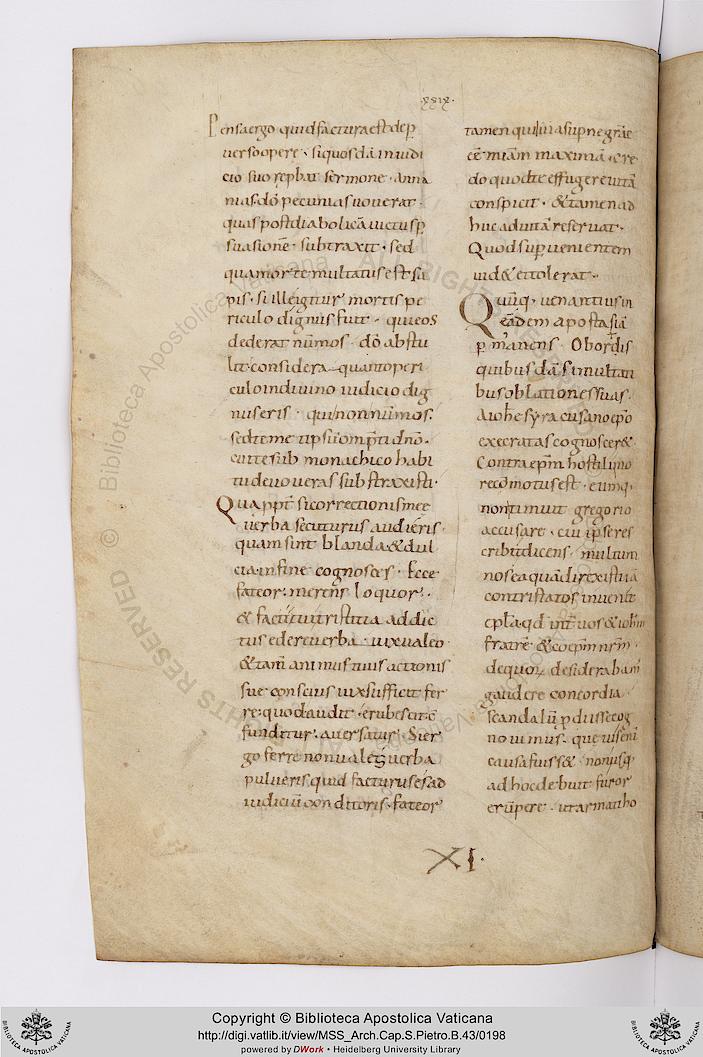 ·xxix·
Pensa ergo quid factura est de p̱
uerso opere · si quosdā in iudi
cio suo rep̱bat sermone · anna
nias · dō pecunias uouerat ·
quas post diabolicā uictus p̱
suasionē · subtraxit · sed
qua morte multatus est sa
pis · Si ille igitur mortis pe
riculo dignus fuit · qui eos
dederat nūmos · dō abstu
lit considera quanto peri
culo in diuino iudicio dig
nus eris · qui non nūmos ·
sed te me tipsū omp̄ti dn̄o ·
cui te sub monachico habi
tu deuoueras substraxisti ·
Quappt̄ si correctionis mee
uerba secuturus audieris ·
quam sint blanda & dul
cia in fine cognosces · Ecce
fateor · merens loquor ·
& facti tui tristitia addic
tus edere uerba uix ualeo ·
& tam̄ animus tuus actionis
sue conscius uix sufficit fer
re · quod audit · erubescit cō
funditur · auersatur · Si er
go ferre non ualet uerba
pulueris quid facturus es ad
iudiciū conditoris · fateor
tamen quia sup̱ne grāe
eē miam maximā · cre
do quod te effugere uitā
conspicit · & tamen ad
huc ad uitā reseruat ·
Quod sup̱uenientem
uid& et tolerat ·
Quūq · uenantius in
eādem apostasiā
p̱manens · Ob ordis
quibusdā simultati
bus oblationes suas ·
a ioh̄e syracusano ep̄o
execratas cognoscer& ·
Contra ep̄m hostiliṯ
recōmotus est · eumq ·
non timuit gregorio
accusare · cui ipse res
cribit dicens · multum
nos ea quā direxistis
contristatos inuenit
ep̄la qd int̄ uos & ioh̄m
fratrē & coep̄m nr̄m ·
de quor desiderabam
gaudere concordia ·
scandalū p̱diisse cog
nouimus · que uis enī
causa fuiss& · non usq
ad hoc debuit furor
erūpere · ut armati ho
XI·
Copyright © Biblioteca Apostolica Vaticana
http://digi.vatlib.it/view/MSS_Arch.Cap.S.Pietro.B.43/0198
powered by DWork · Heidelberg University Library